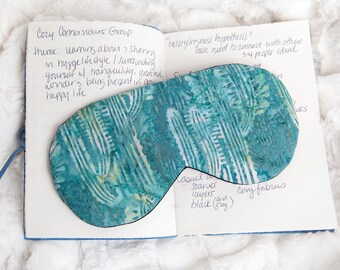 Cozy Connoisseurs Group
theme: learning about & sharing
in hygge lifestyle / surrounding
yourself w/ tranquility,
wonder & being present in
happy life
"belongingness hypothesis"
have need to connect with others
people ideal
casual
scarves
layers
black (and gray)
cozy fabrics